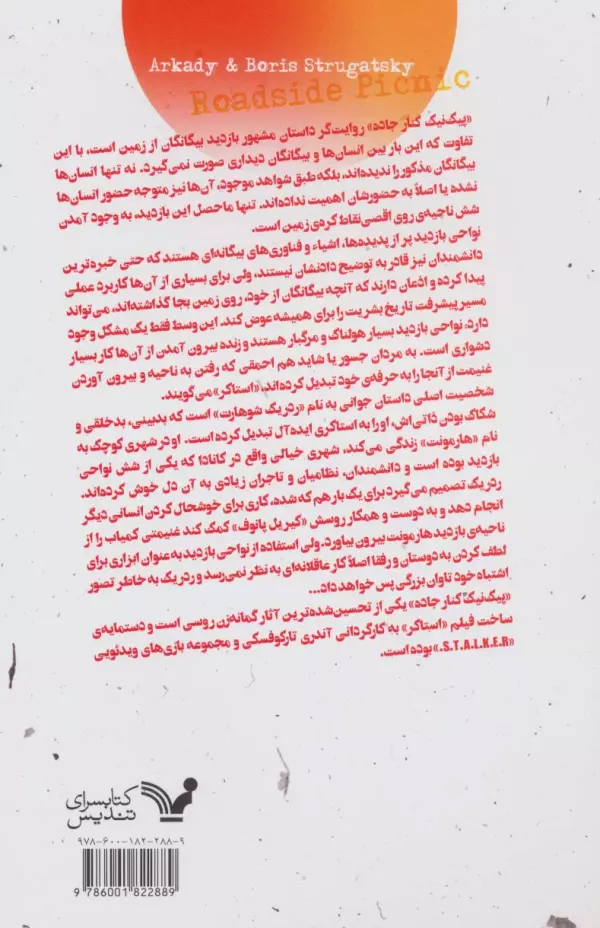 Arkady & Boris Strugatsky
Roadside Picnic
«پیک‌نیک کنار جاده» روایت‌گر داستان مشهور بازدید بیگانگان از زمین است، با این
تفاوت که این بار بین انسان‌ها و بیگانگان دیداری صورت نمی‌گیرد. نه تنها انسان‌ها
بیگانگان مذکور را ندیده‌اند، بلکه طبق شواهد موجود، آن‌ها نیز متوجه حضور انسان‌ها
نشده یا اصلاً به حضورشان اهمیت نداده‌اند. تنها ماحصل این بازدید، به وجود آمدن
شش ناحیه‌ی روی اقصی نقاط کره‌ی زمین است.
نواحی بازدید پر از پدیده‌ها، اشیاء و فناوری‌های بیگانه‌ای هستند که حتی خبره‌ترین
دانشمندان نیز قادر به توضیح دادنشان نیستند، ولی برای بسیاری از آن‌ها کاربرد عملی
پیدا کرده و اذعان دارند که آنچه بیگانگان از خود، روی زمین بجا گذاشته‌اند، می‌تواند
مسیر پیشرفت تاریخ بشریت را برای همیشه عوض کند. این وسط فقط یک مشکل وجود
دارد. نواحی بازدید بسیار هولناک و مرگبار هستند و زنده بیرون آمدن از آن‌ها کار بسیار
دشواری است. به مردان جسور یا شاید هم احمقی که رفتن به ناحیه و بیرون آوردن
غنیمت از آنجا را به حرفه‌ی خود تبدیل کرده‌اند، «استاکر» می‌گویند.
شخصیت اصلی داستان جوانی به نام «ردریک شوهارت» است که بدبینی، بدخلقی و
شکاک بودن ذاتی‌اش، او را به استاکری ایده‌آل تبدیل کرده است. او در شهری کوچک به
نام «هارمونت» زندگی می‌کند، شهری خیالی واقع در کانادا که یکی از شش نواحی
بازدید بوده است و دانشمندان، نظامیان و تاجران زیادی به آن دل خوش کرده‌اند.
ردریک تصمیم می‌گیرد برای یک بار هم که شده، کاری برای خوشحال کردن انسانی دیگر
انجام دهد و به دوست و همکار روسش «کیریل پانوف» کمک کند غنیمتی کمیاب را از
ناحیه‌ی بازدید هارمونت بیرون بیاورد. ولی استفاده از نواحی بازدید به‌عنوان ابزاری برای
لطف کردن به دوستان و رفقا اصلاً کار عاقلانه‌ای به نظر نمی‌رسد و ردریک به خاطر تصور
اشتباه خود تاوان بزرگی پس خواهد داد...
«پیک‌نیک کنار جاده» یکی از تحسین‌شده‌ترین آثار گمانه‌زن روسی است و دستمایه‌ی
ساخت فیلم «استاکر» به کارگردانی آندری تارکوفسکی و مجموعه بازی‌های ویدئویی
«S.T.A.L.K.E.R.» بوده است.
کتابسرای
تندیس
۹۷۸-۶۰۰-۱۸۲-۲۸۸-۹
9 786001 822889